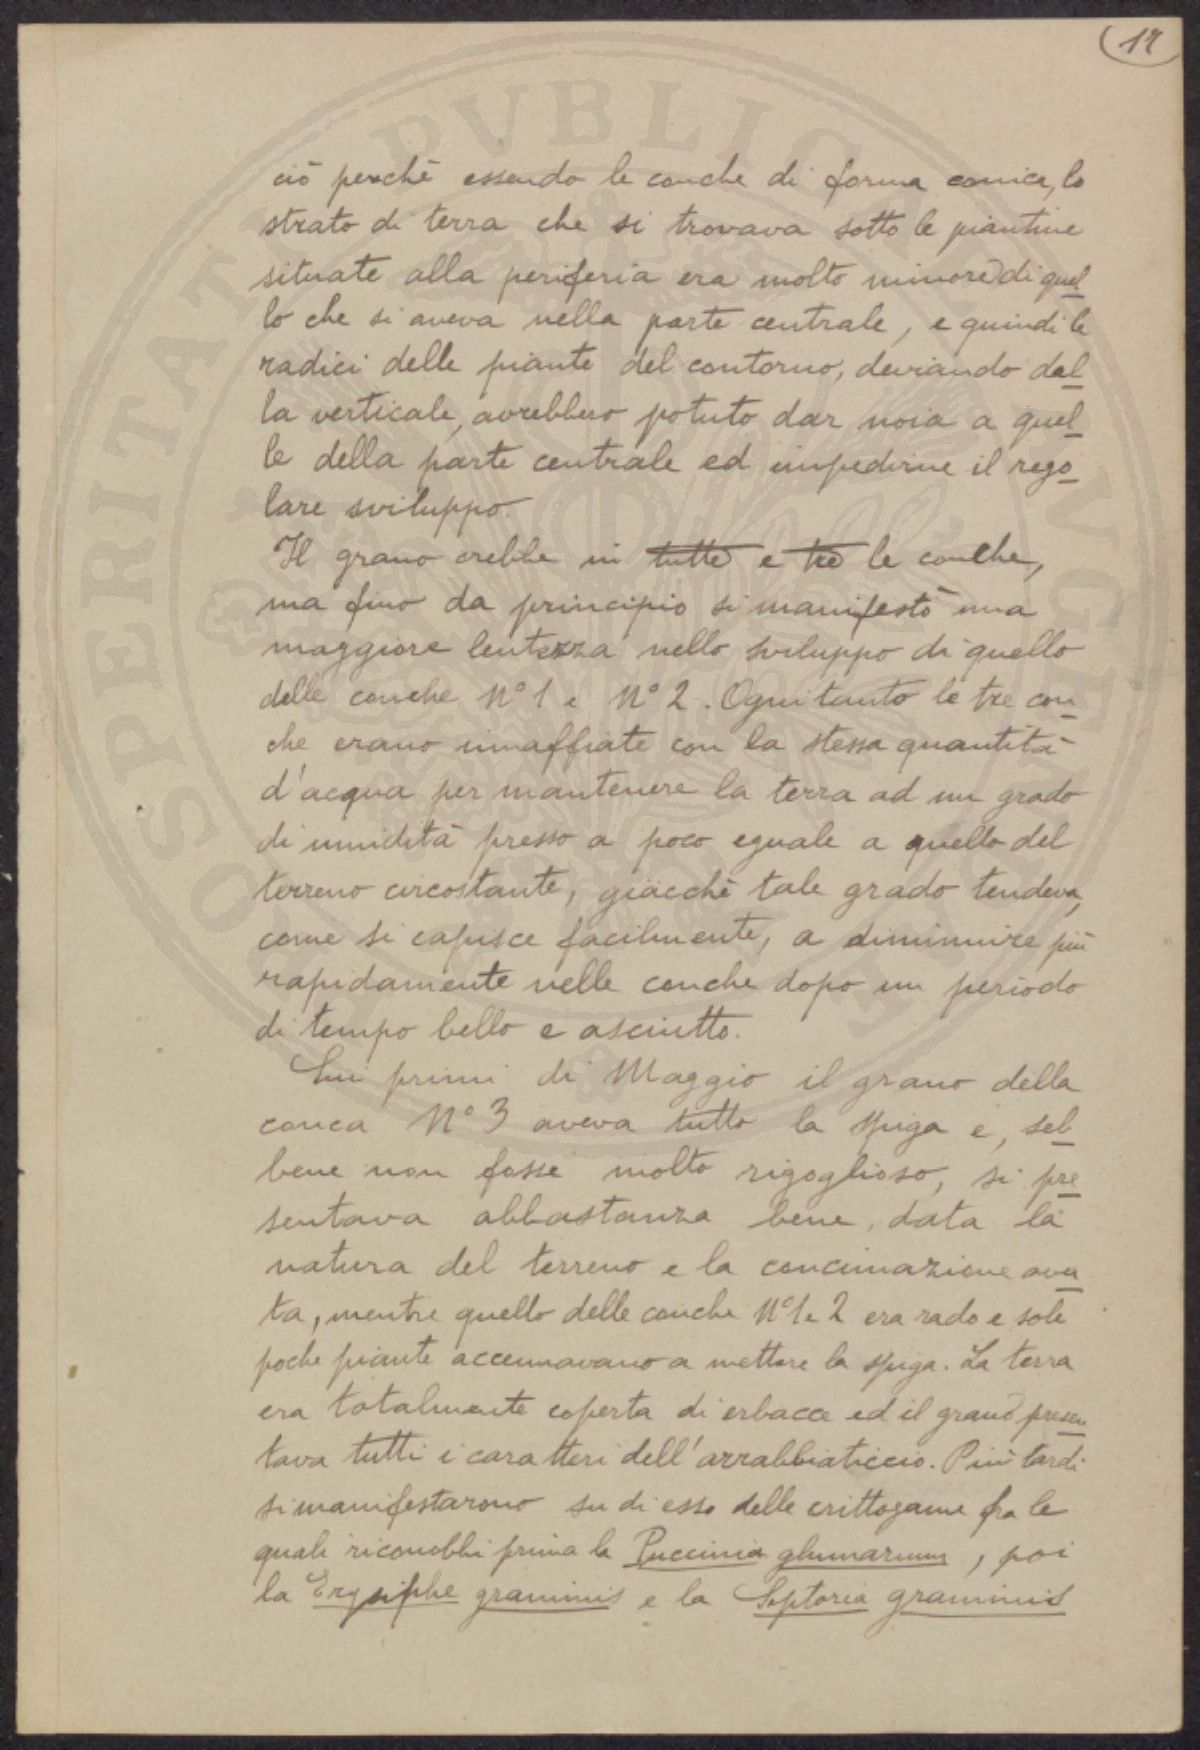 17
ciò perchè essendo le conche di forma conica, lo
strato di terra che si trovava sotto le piantine
situate alla periferia era molto minore di quel
lo che si aveva nella parte centrale, e quindi le
radici delle piante del contorno, deviando dal
la verticale, avrebbero potuto dar noia a quel
le della parte centrale ed impedirne il rego
lare sviluppo.
Il grano crebbe in tutte e tre le conche,
ma fino da principio si manifestò una
maggiore lentezza nello sviluppo di quello
delle conche N° 1 e N° 2. Ogni tanto le tre con
che erano innaffiate con la stessa quantità
d'acqua per mantenere la terra ad un grado
di umidità presso a poco eguale a quello del
terreno circostante, giacchè tale grado tendeva,
come si capisce facilmente, a diminuire più
rapidamente nelle conche dopo un periodo
di tempo bello e asciutto.
Sui primi di Maggio il grano della
conca N° 3 aveva tutto la spiga e, seb
bene non fosse molto rigoglioso, si pre
sentava abbastanza bene, data la
natura del terreno e la concimazione avu
ta, mentre quello delle conche N° 1 e 2 era rado e sole
poche piante accennavano a mettere la spiga. La terra
era totalmente coperta di erbacce ed il grano presen
tava tutti i caratteri dell'arrabbiaticcio. Più tardi
si manifestarono su di esso delle crittogame fra le
quali riconobbi prima la Puccinia glumarum, poi
la Erysiphe graminis e la Septoria graminis
PVBLICA
PROSPERITATI
AVGENDAE